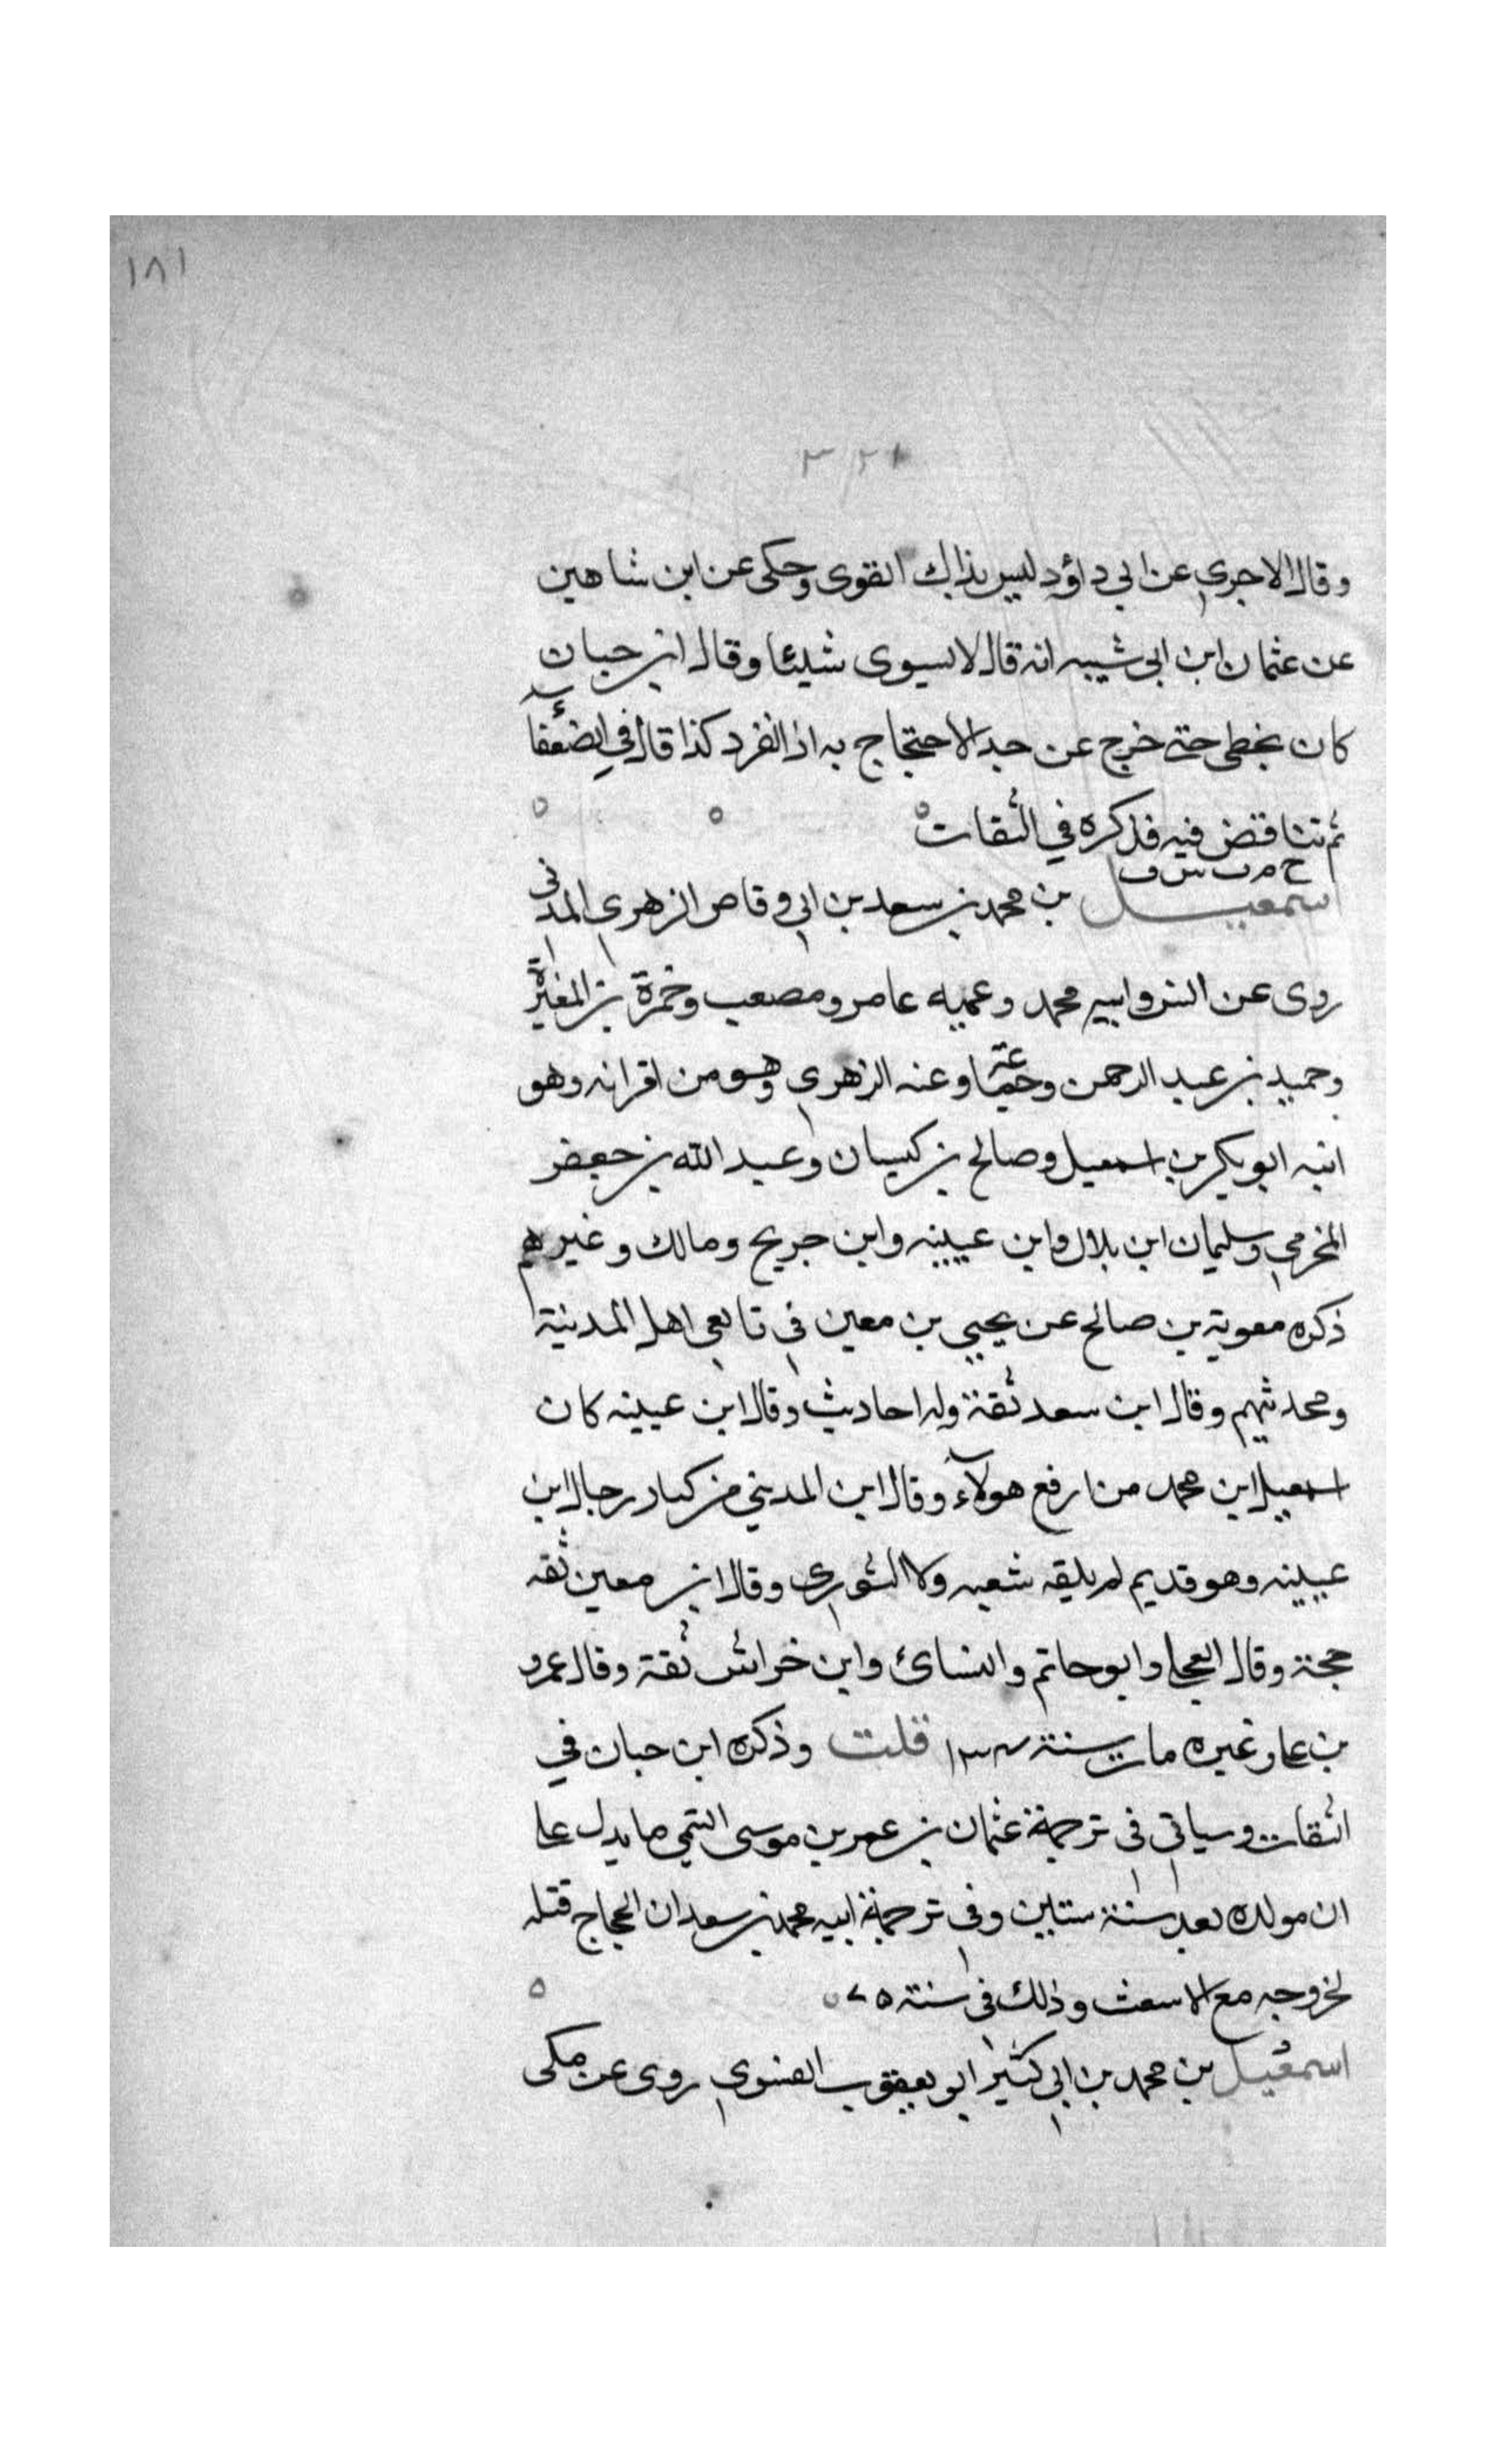 ١٨١
٣٢١
وقال الاجري عن ابي داؤد ليس بذاك القوى وحكى عن ابن شاهين
عن عثمان ابن ابى شيبه انه قال لا يسوى شيئا وقال ابن حبان
كان يخطى حتى خرج عن حد الاحتجاج به اذا انفرد كذا قال في الضعفآء
ثم تناقض فيه فذكره في الثقات
خ م ت س ق
اسمعيل بن محمد بن سعد بن ابى وقاص الزهري المدنى
روى عن انس وابيه محمد وعميه عامر ومصعب وحمزة بن المغيرة
وحميد بن عبد الرحمن وجماعة وعنه الزهري وهو من اقرانه وهو
ابنه ابو بكر بن اسمعيل وصالح بن كيسان وعبد الله بن جعفر
المخرمي وسليمان ابن بلال وابن عيينه وابن جريج ومالك وغيرهم
ذكره معوية بن صالح عن يحيى بن معين فى تابعى اهل المدينة
ومحدثيهم وقال ابن سعد ثقة وله احاديث وقال ابن عيينه كان
اسمعيل ابن محمد من ارفع هولآء وقال ابن المديني من كبار رجال ابن
عيينه وهو قديم لم يلقه شعبه ولا الثوري وقال ابن معين ثقه
حجة وقال العجلى وابو حاتم والنسائ وابن خراش ثقة وقال عمرو
بن على وغيره مات سنة ١٣٤ قلت وذكره ابن حبان في
الثقات وسياتى فى ترجمة عثمان بن عمر بن موسى التيمى ما يدل على
ان مولده بعد سنة ستين وفى ترجمة ابيه محمد بن سعد ان الحجاج قتله
لخروجه مع الاسعث وذلك فى سنة ٧٥
اسمعيل بن محمد بن ابى كثير ابو يعقوب الفسوي روى عن مكى